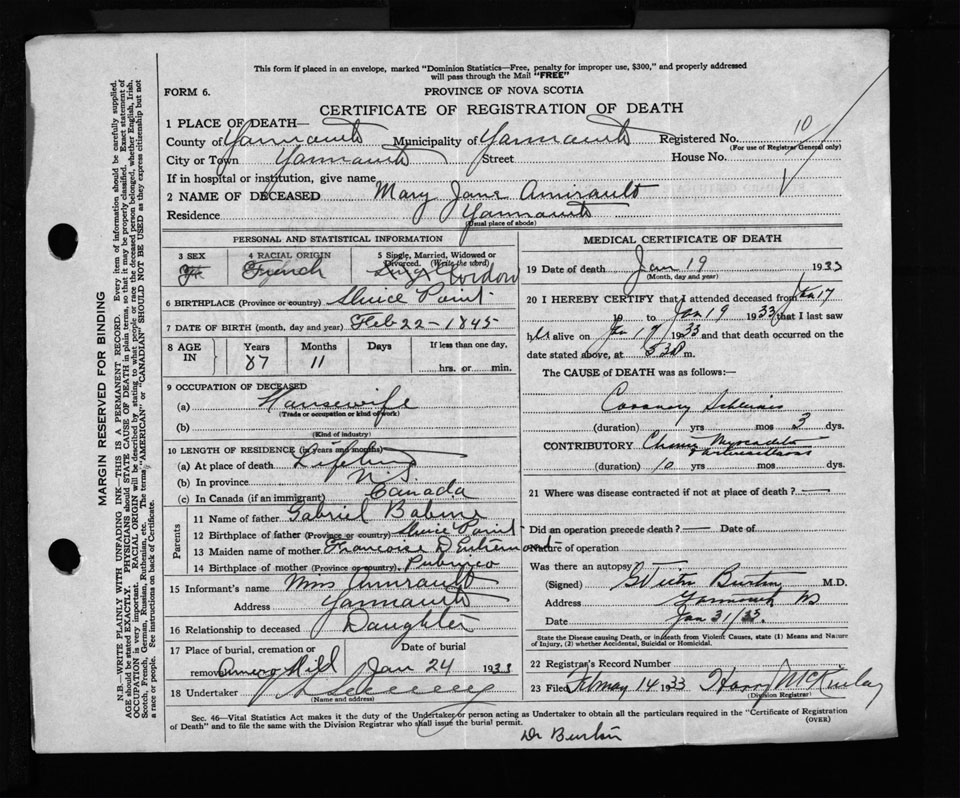 This form if placed in an envelope, marked "Dominion Statistics—Free, penalty for improper use, $300," and properly addressed
will pass through the Mail "FREE"
FORM 6. PROVINCE OF NOVA SCOTIA
CERTIFICATE OF REGISTRATION OF DEATH
1 PLACE OF DEATH—
County of Yarmouth Municipality of Yarmouth Registered No. 10
(For use of Registrar General only)
City or Town Yarmouth Street House No.
If in hospital or institution, give name
2 NAME OF DECEASED Mary Jane Amirault
Residence Yarmouth
(Usual place of abode)
PERSONAL AND STATISTICAL INFORMATION
3 SEX 4 RACIAL ORIGIN 5 Single, Married, Widowed or
Divorced. (Write the word)
F. French Widow
6 BIRTHPLACE (Province or country) Sluice Point
7 DATE OF BIRTH (month, day and year) Feb 22 - 1845
8 AGE IN Years Months Days If less than one day,
87 11 hrs. or min.
9 OCCUPATION OF DECEASED
(a) Housewife
(Trade or occupation or kind of work)
(b)
(Kind of industry)
10 LENGTH OF RESIDENCE (in years and months)
(a) At place of death Lifetime
(b) In province N.S.
(c) In Canada (if an immigrant) Canada
Parents
11 Name of father Gabriel Babine
12 Birthplace of father (Province or country) Sluice Point
13 Maiden name of mother Francoise D Entremont
14 Birthplace of mother (Province or country) Pubnico
15 Informant's name Mrs Amirault
Address Yarmouth
16 Relationship to deceased Daughter
17 Place of burial, cremation or Date of burial
removal Hill Jan 24 1933
18 Undertaker
(Name and address)
MEDICAL CERTIFICATE OF DEATH
19 Date of death Jan 19 1933
(Month, day and year)
20 I HEREBY CERTIFY that I attended deceased from Jan 17
19 to Jan 19 1933 that I last saw
h alive on Jan 19 1933 and that death occurred on
date stated above, at 530 m.
The CAUSE of DEATH was as follows:—
Coronary Sclerosis
(duration) yrs mos 3 dys.
CONTRIBUTORY Chronic Myocarditis
(duration) 10 yrs mos dys.
21 Where was disease contracted if not at place of death? —
Did an operation precede death? — Date of
Nature of operation
Was there an autopsy
(Signed) Burton M.D.
Address Yarmouth NS
Date Jan 31/33.
State the Disease causing Death, or in death from Violent Causes, state (1) Means and Nature
of Injury, (2) whether Accidental, Suicidal or Homicidal.
22 Registrar's Record Number
23 Filed February 14 1933 Harry McKinlay
(Division Registrar)
Sec. 46—Vital Statistics Act makes it the duty of the Undertaker or person acting as Undertaker to obtain all the particulars required in the "Certificate of Registration
of Death" and to file the same with the Division Registrar who shall issue the burial permit. (OVER)
Dr Burton
MARGIN RESERVED FOR BINDING
N.B.—WRITE PLAINLY WITH UNFADING INK—THIS IS A PERMANENT RECORD. Every item of information should be carefully supplied.
AGE should be stated EXACTLY. PHYSICIANS should STATE CAUSE OF DEATH in plain terms, so that it may be properly classified. Exact statement of
OCCUPATION is very important. RACIAL ORIGIN will be described by stating to what people or race the deceased person belonged, whether English, Irish,
Scotch, French, German, Russian, Ruthenian, etc. The terms "AMERICAN" or "CANADIAN" SHOULD NOT BE USED as they express citizenship but not
a race or people. See instructions on back of Certificate.